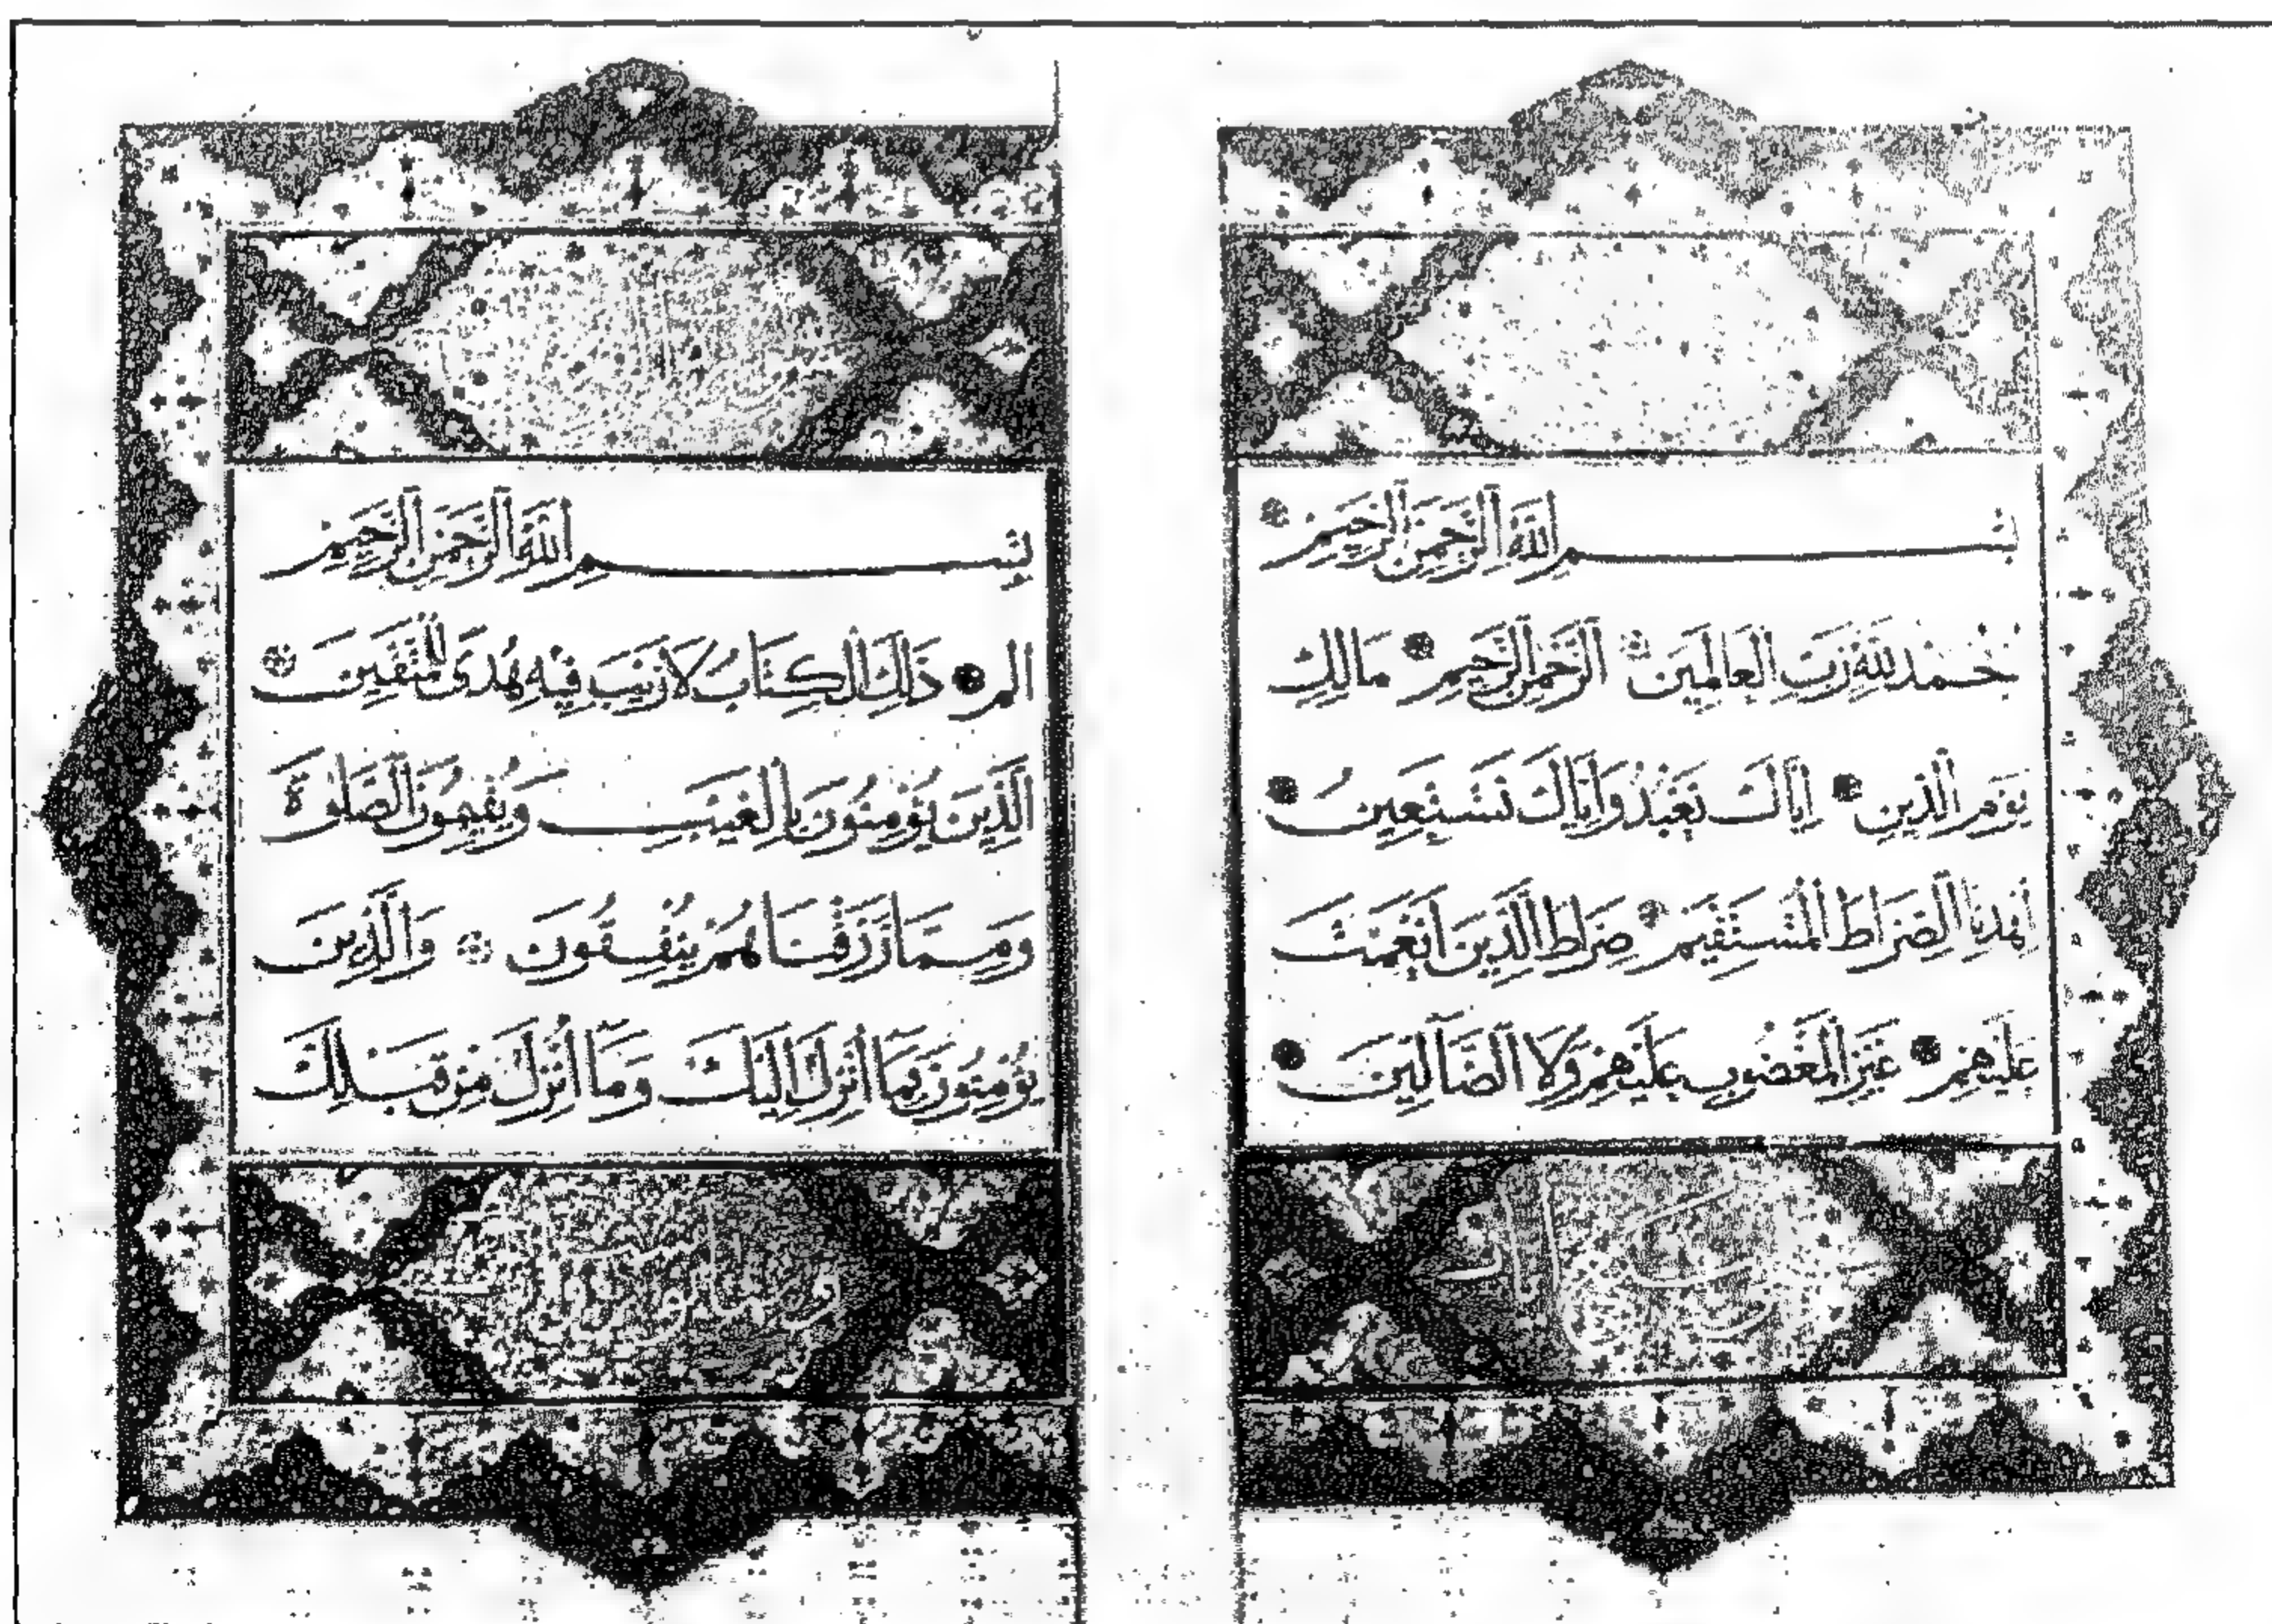 بِسْمِ اللَّهِ الرَّحْمَٰنِ الرَّحِيمِ
لحَمْدُ لِلَّهِ رَبِّ الْعَالَمِينَ الرَّحْمَٰنِ الرَّحِيمِ مَالِكِ
يَوْمِ الدِّينِ اِيَّاكَ نَعْبُدُ وَاِيَّاكَ نَسْتَعِينُ
اِهْدِنَا الصِّرَاطَ الْمُسْتَقِيمَ صِرَاطَ الَّذِينَ اَنْعَمْتَ
عَلَيْهِمْ غَيْرِ الْمَغْضُوبِ عَلَيْهِمْ وَلَا الضَّالِّينَ
بِسْمِ اللَّهِ الرَّحْمَٰنِ الرَّحِيمِ
الم ذَلِكَ الْكِتَابُ لَا رَيْبَ فِيهِ هُدًى لِلْمُتَّقِينَ
الَّذِينَ يُؤْمِنُونَ بِالْغَيْبِ وَيُقِيمُونَ الصَّلٰوةَ
وَمِمَّا رَزَقْنَاهُمْ يُنْفِقُونَ وَالَّذِينَ
يُؤْمِنُونَ بِمَا اُنْزِلَ اِلَيْكَ وَمَا اُنْزِلَ مِنْ قَبْلِكَ